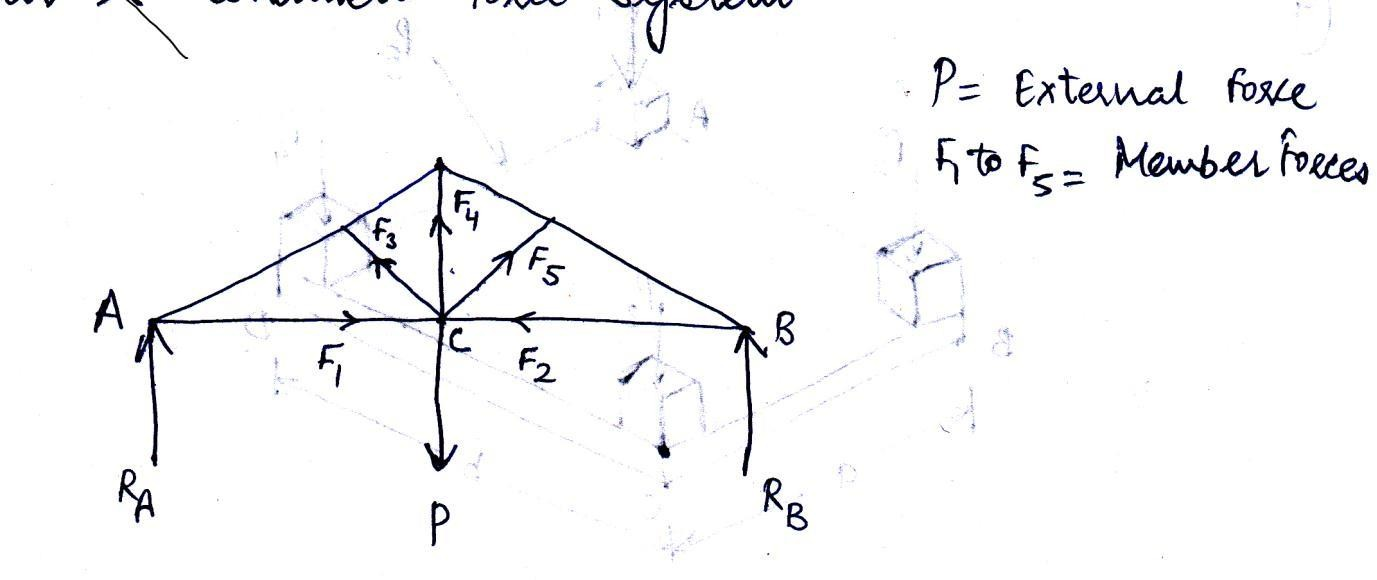 force system
P= External Force
F1 to F5 = Member Forces
F4
F3
F5
A
B
C
F1
F2
RA
RB
P